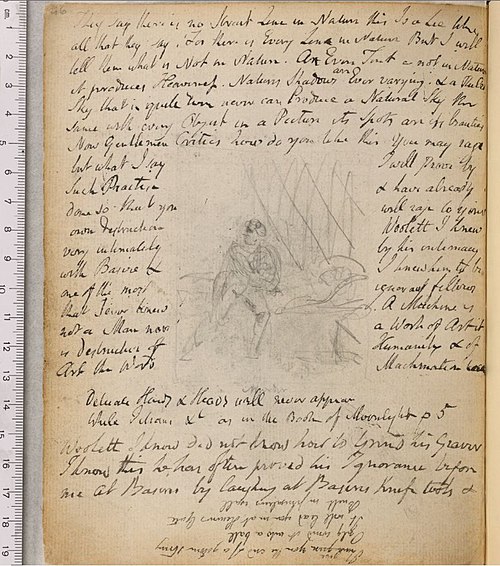 46
They say there is no Strait Line in Nature this Is a Lie like
all that they say. For there is Every Line in Nature But I will
tell them what is Not in Nature. An Even Tint is not in Nature
it produces Heaviness. Natures Shadows are Ever varying. & a Ruled
Sky that is quite Even never can Produce a Natural Sky the
same with every Object in a Picture its Spots are its beauties
Now Gentlemen Critics how do you like this You may rage
but what I say I will prove by
Such Practise & have already
done so that you will rage to your
own destruction Woolett I knew
very intimately by his intimacy
with Basire & I knew him to be
one of the most ignorant fellows
that I ever knew A Machine is
not a Man nor a Work of Art it
is Destructive of Humanity & of
Art the Word Machination
Delicate Hands & Heads will never appear
While Titians &c as in the Book of Moonlight p 5
Woolett I know did not know how to Grind his Graver
I know this he has often proved his Ignorance before
me at Basires by laughing at Basires knife tools &
I give you the end of a golden string
Only wind it into a ball
It will lead you in at Heavens gate
Built in Jerusalems wall